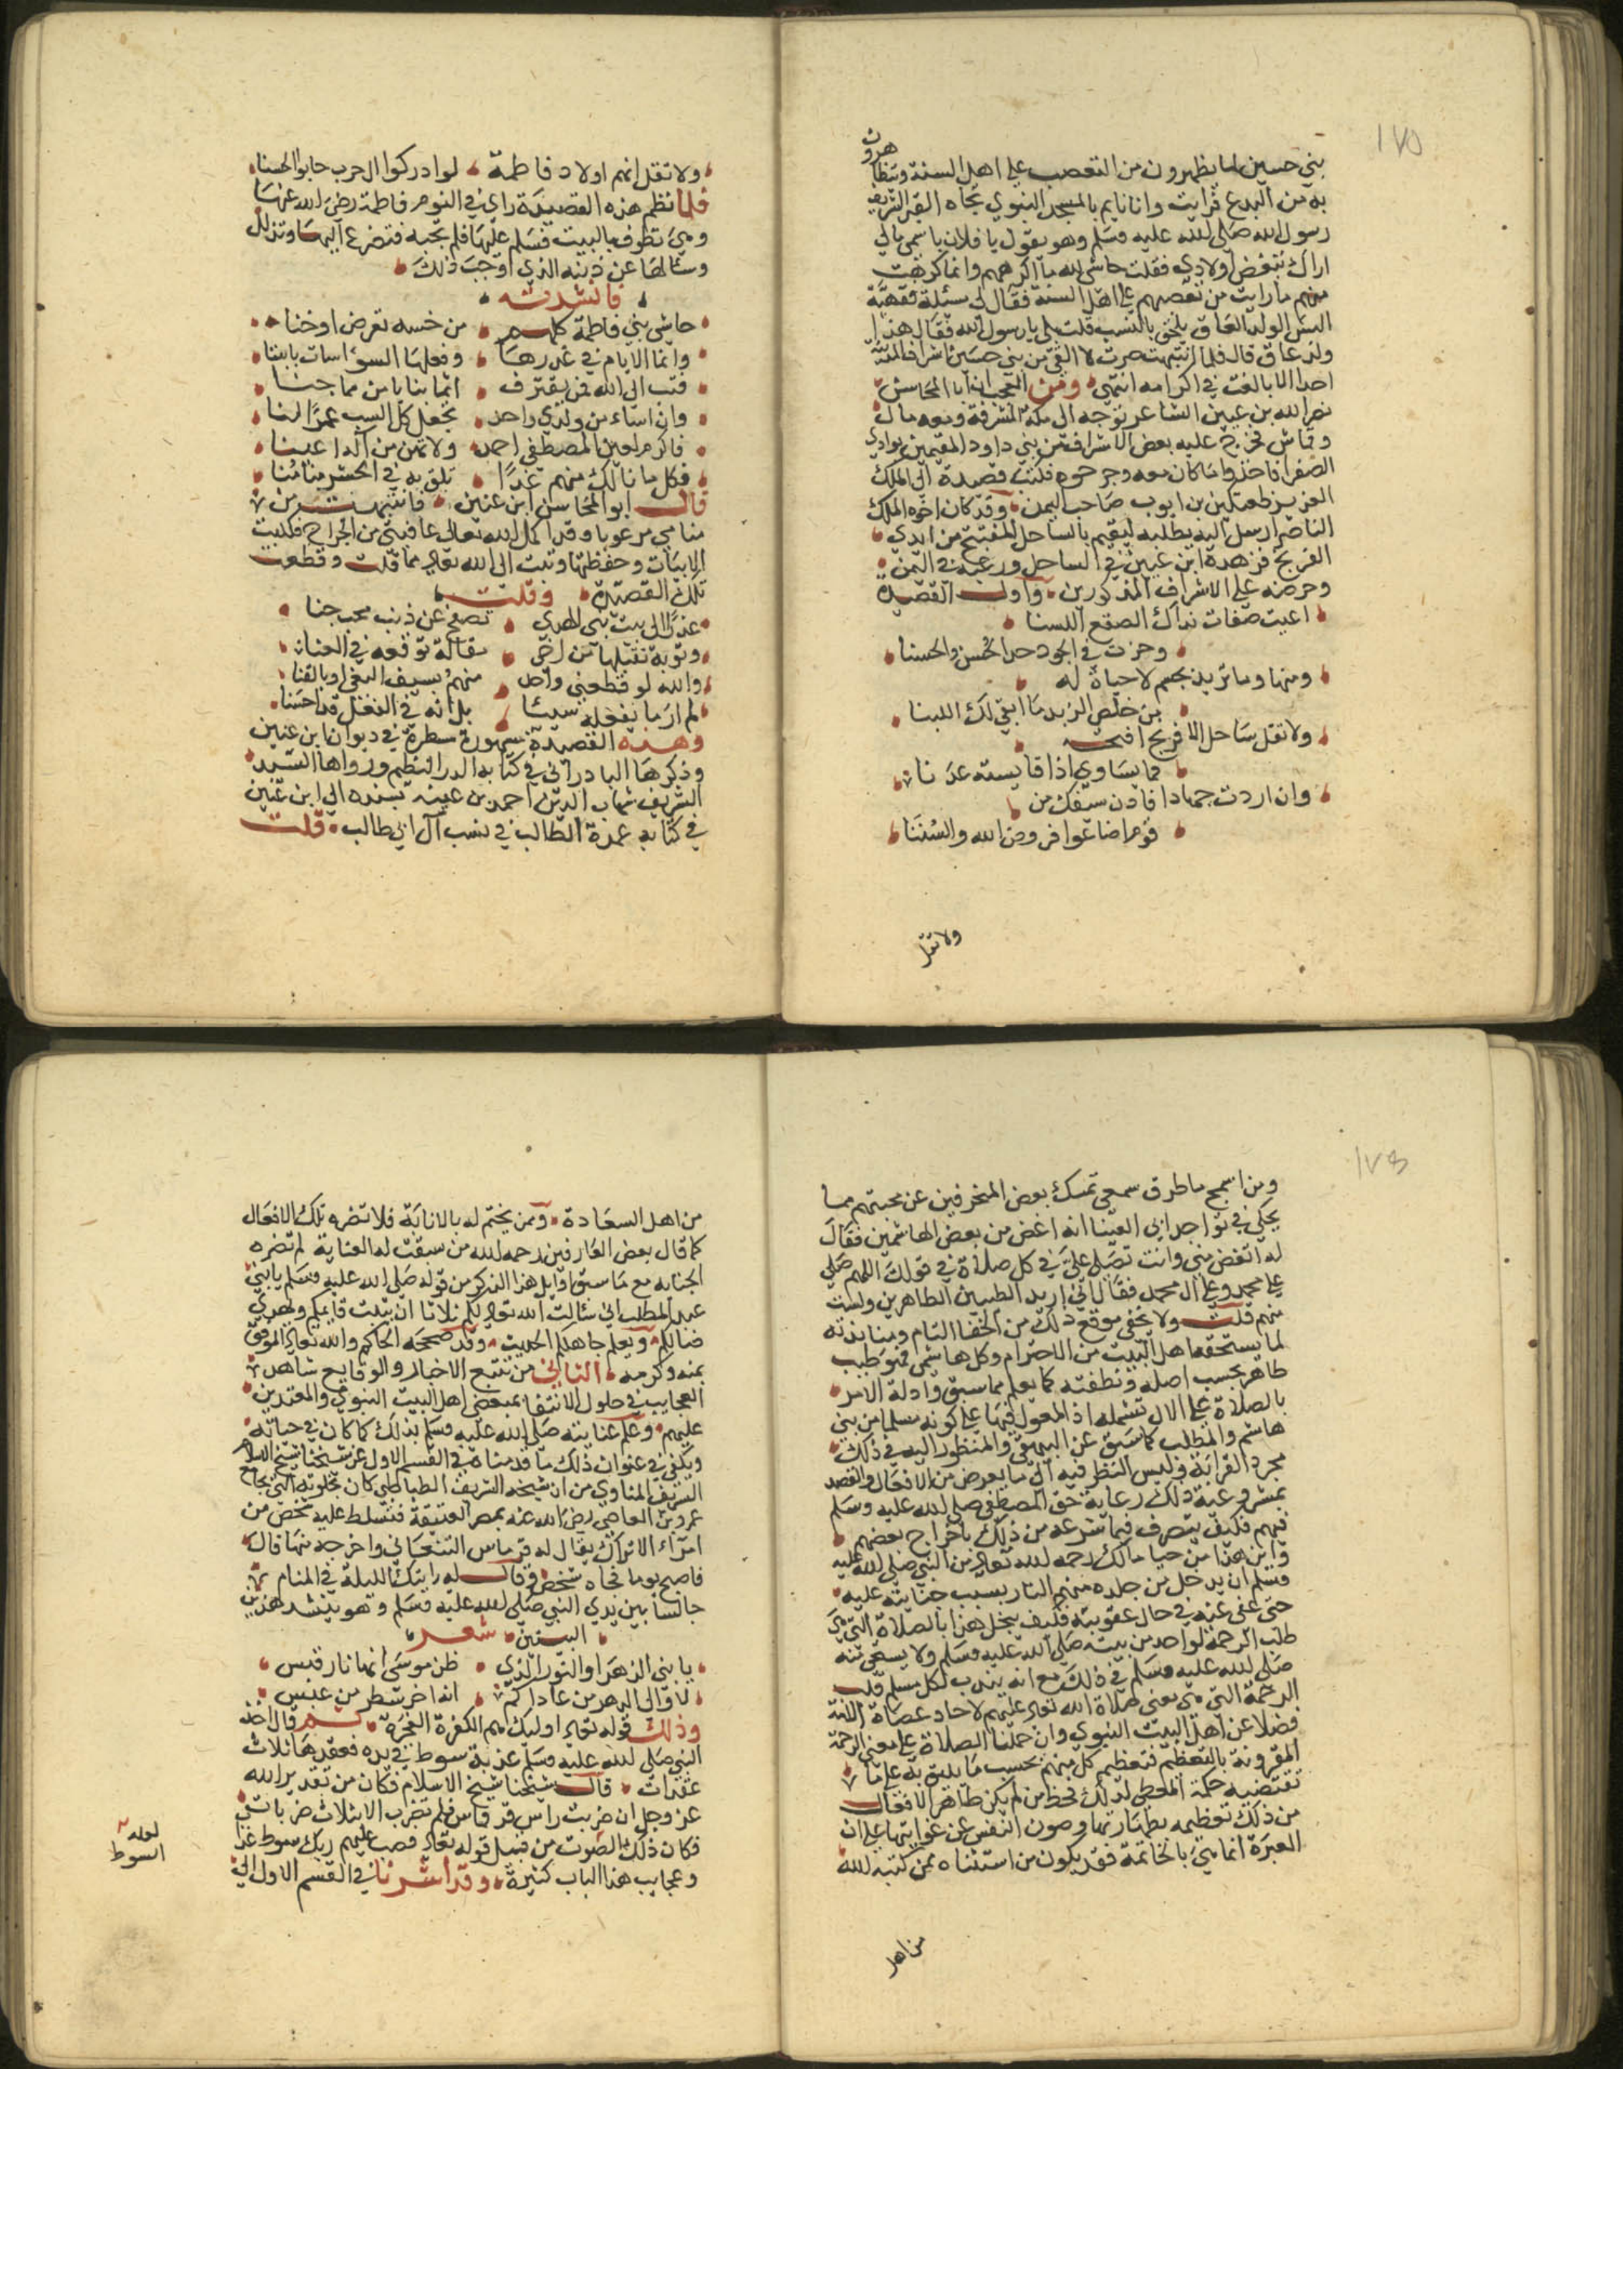 ١٧٥
بني حسين لما يظهرون من التعصب على اهل السنة ويتظاهرون
به من البدع فرايت وانا نايم بالمسجد النبوي تجاه القبر الشريف
رسول الله صلى الله عليه وسلم وهو يقول يا فلان باسمي مالي
اراك تبغض اولادي فقلت حاشى لله ما اكرههم وانما كرهت
منهم ما رايت من تعصبهم على اهل السنة فقال لي مسئلة فقهية
اليس الولد العاق يلحق بالنسب قلت بلى يا رسول الله فقال هذا
ولد عاق قال فلما انتبهت صرت لا القى من بني حسين اشراف المدينة
احدا الا بالغت في اكرامه انتهى ومن العجب ان ابا المحاسن
نصر الله بن عنين الشاعر توجه الى مكة المشرفة ومعه مال
وقماش فخرج عليه بعض الاشراف من بني داود المقيمين بوادي
الصفرا فاخذوا ما كان معه وجرحوه فكتب قصيدة الى الملك
العزيز طغتكين بن ايوب صاحب اليمن وقد كان اخوه الملك
الناصر ارسل اليه يطلبه ليقيم بالساحل المفتتح من ايدي
الفرنج فزهده ابن عنين في الساحل ورغبه في اليمن
وحرضه على الاشراف المذكورين واول القصيدة
اعيت صفات نداك المصقع اللسنا
وحزت في الجود حد الحسن والحسنا
ومنها وما تريد بجسم لا حياة له
من خلص الزبد ما ابقى لك اللبنا
ولا تقل ساحل الافرنج افتحه
فما يساوي اذا قايسته عدنا
وان اردت جهادا فادن سيفك من
قوم اضاعوا فروض الله والسننا
ولا تقل
ولا تقل انهم اولاد فاطمة لو ادركوا ال حرب حابوا الحسنا
فلما نظم هذه القصيدة راى في النوم فاطمة رضي الله عنها
وهي تطوف بالبيت فسلم عليها فلم تجبه فتضرع اليها وتذلل
وسالها عن ذنبه الذي اوجب ذلك
فانشدته
حاشى بني فاطمة كلهم من خسه تعرض او خنا
وانما الايام في غدرها وفعلها السوء اسات بابنا
فتب الى الله فمن يقترف اثما بنا يامن مما جنا
وان اساء من ولدي واحد تجعل كل السب عمدا لنا
فاكرم لعين المصطفى احمد ولا تهن من آله اعينا
فكل ما نالك منهم غدا تلق به في الحشر منا منا
قال ابو المحاسن ابن عنين فانتبهت من
منامي مرعوبا وقد اكمل الله تعالى عافيتي من الجراح فكتبت
الابيات وحفظتها وتبت الى الله تعالى مما قلت وقطعت
تلك القصيدة وقلت
عذرا الى بيت نبي الهدى تصفح عن ذنب محب جنا
وتوبة تقبلها من اخي مقالة توقعه في العنا
والله لو قطعني واحد منهم بسيف البغي او بالقنا
لم ار ما يفعله سيئا بل انه في الفعل قد احسنا
وهذه القصيدة مشهورة سطرة في ديوان ابن عنين
وذكرها البادراني في كتابه الدر النظيم ورواها السيد
الشريف شهاب الدين احمد بن عنبه بسنده الى ابن عنين
في كتابه عمدة الطالب في نسب آل ابي طالب قلت
ومن اسمج ما طرق سمعي تمسك بعض المنحرفين عن محبتهم مما
يحكى في نوادر ابي العينا انه اغض من بعض الهاشمين فقال
له اتغض مني وانت تصلي علي في كل صلاة في قولك اللهم صلي
على محمد وعلى ال محمد فقال اني اريد الطيبين الطاهرين ولست
منهم قلت ولا يخفى موقع ذلك من الجفا التام ومنابذته
لما يستحقه اهل البيت من الاحترام وكل هاشمي فهو طيب
طاهر بحسب اصله ونطفته كما يعلم مما سبق وادلة الامر
بالصلاة على الال تشمله اذ المعول فيها على كونه مسلما من بني
هاشم والمطلب كما سبق عن البيهقي والمنظور اليه في ذلك
مجرد القرابة وليس النظر فيه الى ما يعرض من الافعال والقصد
بمشروعية ذلك رعاية حق المصطفى صلى الله عليه وسلم
فيهم فكيف يتصرف فيما شرعه من ذلك باخراج بعضهم
واين هذا من حيا مالك رحمه الله تعالى من النبي صلى الله عليه
وسلم ان يدخل من جلده منهم النار بسبب جنايته عليه
حتى عفى عنه في حال عقوبته فكيف يبخل هذا بالصلاة التي هي
طلب الرحمة لواحد من بيته صلى الله عليه وسلم ولا يستحي منه
صلى الله عليه وسلم في ذلك مع انه يندب لكل مسلم
الرحمة التي هي معنى صلاة الله تعالى عليهم لاحاد عصاة الامة
فضلا عن اهل البيت النبوي وان حملنا الصلاة على معنى الرحمة
المقرونة بالتعظيم فتعظيم كل منهم بحسب ما يليق به على ما
تقتضيه حكمة المعطي لذلك فحظ من لم يكن طاهر الافعال
من ذلك تعظيمه بطهارتها وصون النفس عن غوايتها على ان
العبرة انما هي بالخاتمة فقد يكون من استثناه ممن كتبه الله
من اهل
من اهل السعادة وممن يختم له بالانابة فلا تضره تلك الافعال
كما قال بعض العارفين رحمه الله من سبقت له العناية لم تضره
الجنايه مع ما سبق اوايل هذا الذكر من قوله صلى الله عليه وسلم يا بني
عبد المطلب اني سالت الله تعالى لكم ثلاثا ان يثبت قايمكم ويهدي
ضالكم ويعلم جاهلكم الحديث وقد صححه الحاكم والله تعالى الموفق
بمنه وكرمه الثاني من تتبع الاخبار والوقايع شاهد
العجايب في حلول الانتقام بمبغضي اهل البيت النبوي والمعتدين
عليهم وعلم عنايته صلى الله عليه وسلم بذلك كما كان في حياته
ويكفي في عنوان ذلك ما قدمناه في القسم الاول عن شيخنا شيخ الاسلام
الشريف المناوي من ان شيخه الشريف الطباطبي كان بخلوته التي بجامع
عمرو بن العاصي رضي الله عنه بمصر العتيقة فتسلط عليه شخص من
امراء الاتراك يقال له قرقماس الشعباني واخرجه منها قال
فاصبح يوما فجاه شخص وقال له رايتك الليلة في المنام
جالسا بين يدي النبي صلى الله عليه وسلم وهو ينشد هذين
البيتين شعر
يا بني الزهرا والنور الذي ظن موسى انها نار قبس
لا اوالي الدهر من عاداكم انه اخر سطر من عبس
وذلك قوله تعالى اوليك هم الكفرة الفجرة ثم قال اخذ
النبي صلى الله عليه وسلم عذبة سوط في يده فعقدها ثلاث
عقدات قال شيخنا شيخ الاسلام فكان من تقدير الله
عز وجل ان ضربت راس قرقماس فلم تضرب الا بثلاث ضربات
فكان ذلك الصوت من قبيل قوله تعالى فصب عليهم ربك سوط عذاب
وعجايب هذا الباب كثيرة وقد اشرنا في القسم الاول الى
لعله
السوط